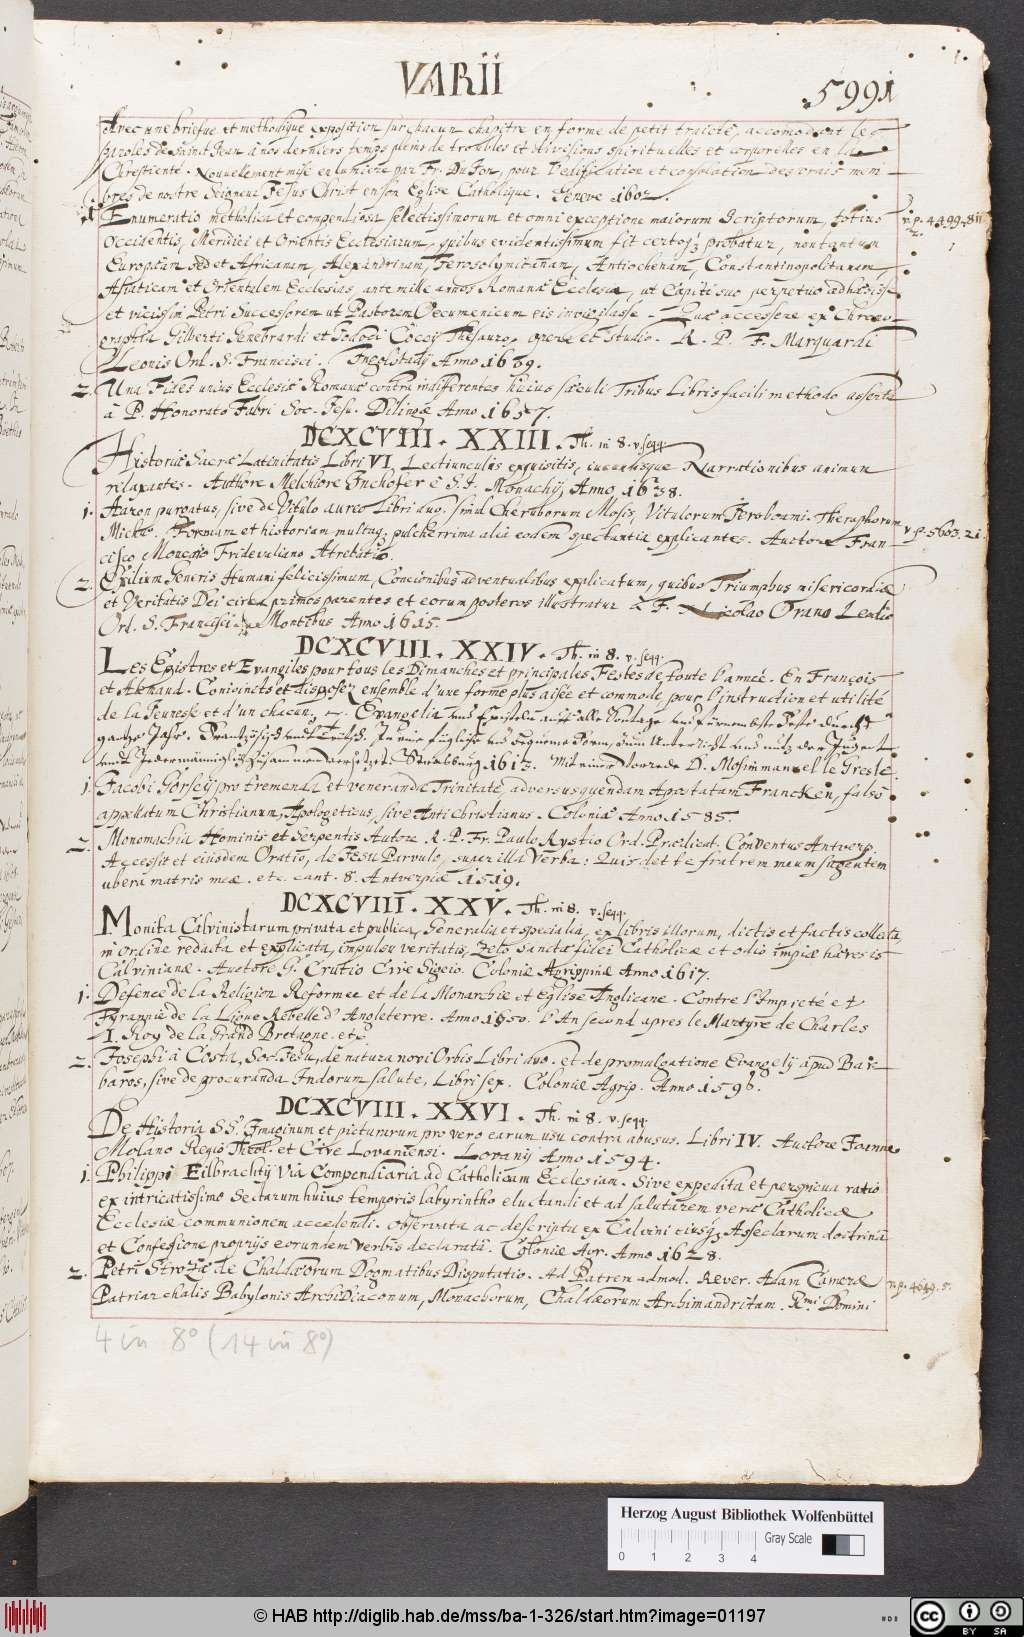 VARII
5991
Avec une briefue et methodique exposition sur chacun chapitre en forme de petit traicté, accomodant les
paroles de Sainct Jean à nos derniers temps pleins de troubles et divisions spirituelles et corporelles en la
Chrestienté. Nouvellement mise en lumiere par Fr. Du Jon, pour l'edification et consolation des vrais mem-
bres de nostre Seigneur Jesus Christ en son Eglise Catholique. Geneve 1602.
1. Enumeratio methodica et compendiosa selectissimorum et omni exceptione maiorum Scriptorum, totius
Occidentis, Meridiei et Orientis Ecclesiarum, quibus evidentissimum fit certoq; probatur, non tantum
Europæam sed et Africanam, Alexandrinam, Jerosolymitanam, Antiochenam, Constantinopolitanam,
Asiaticam et Orientalem Ecclesias ante mille annos Romanæ Ecclesiæ, ut Capiti suo perpetuo adhæsisse
et vicissim Petri Successorem ut Pastorem Oecumenicum eis invigilasse. Quæ accessere ex Chrono-
graphia Gilberti Genebrardi et Jodoci Coccij Thesauro, opera et studio. R. P. F. Marquardi
Leonis Ord. S. Francisci. Ingolstadij Anno 1609.
2. Una Fides unius Ecclesiæ Romanæ contra indifferentes huius sæculi Tribus Libris facili methodo asserta
à P. Honorato Fabri Soc. Jesu. Dilingæ Anno 1657.
DCXCVIII. XXIII. Th. in 8. v. seqq.
Historiæ Sacræ Latinitatis Libri VI, Lectiunculis exquisitis, iucundisque Narrationibus animum
relaxantes. Authore Melchiore Inchofer è S. J. Monachij, Anno, 1638.
1. Aaron purgatus, sive de Vitulo aureo Libri duo. simul Cheruborum Mosis, Vitulorum Jeroboami, Theraphorum
Michæ. Formam et historiam multaq; pulcherrima alia eodem spectantia explicantes. Auctore Fran-
cisco Moncæio Fridevaliano Atrebatio.
2. Exilium Generis Humani felicissimum, Concionibus adventualibus explicatum, quibus Triumphus misericordiæ
et Veritatis Dei circa primos parentes et eorum posteros illustratur à F. Nicolao Orano Leodio
Ord. S. Francisci. Montibus Anno 1615.
DCXCVIII. XXIV. Th. in 8. v. seqq.
Les Epistres et Evangiles pour tous les Dimanches et principales Festes de toute l'année. En François
et Alemand. Conioincts et disposez ensemble d'une forme plus aisée et commode pour l'instruction et utilité
de la Jeunesse et d'un chacun. Evangelia und Episteln auff alle Sontage und fürnembste Feste durch
gantze Jahr. Frantzösisch und Teutsch. In eine füglische und bequeme Form, zum Unterricht und nutz der Jugent
und Jedermänniglich zusammen versetzet. Strasburg 1613. Mit einer Vorrede D. Mosimmanuel le Gresle.
1. Jacobi Gorscij pro tremenda et veneranda Trinitate, adversus quendam Apostatam Francken, falsò
appellatum Christianum, Apologeticus, sive Antichristianus. Coloniæ Anno 1585.
2. Monomachia Hominis et Serpentis Autore R. P. Fr. Paulo Rystio Ord. Prædicat. Conventus Antverp.
Accessit et eiusdem Oratio, de Jesu Parvulo, super illa Verba: Quis det te fratrem meum sugentem
ubera matris meæ. etc. cant. 8. Antverpiæ 1519.
DCXCVIII. XXV. Th. in 8. v. seqq.
Monita Calvinistarum privata et publica, Generalia et specialia, ex libris illorum, dictis et factis collecta,
in ordine redacta et explicata, impulsu veritatis, zelo sanctæ fidei Catholicæ et odio impiæ hæresis
Calvinianæ. Auctore G. Erutio Cive Sigeio. Coloniæ Agrippinæ Anno 1617.
1. Defence de la Religion Reformée et de la Monarchie et Eglise Anglicane. Contre l'Impieté et
Tyrannie de la Ligue Rebelle d'Angleterre. Anno 1650. l'An second apres le Martyre de Charles
I. Roy de la Grand Bretagne. etc.
2. Josephi à Costa, Soc. Jesu, de natura novi Orbis Libri duo. et de promulgatione Evangelij apud Bar-
baros, sive de procuranda Indorum salute, Libri sex. Coloniæ Agrip. Anno 1596.
DCXCVIII. XXVI. Th. in 8. v. seqq.
De Historia SS. Imaginum et picturarum pro vero earum usu contra abusus. Libri IV. Auctore Joanne
Molano Regio Theol. et Cive Lovaniensi. Lovanij Anno 1594.
1. Philippi Eilbrachtij Via Compendiaria ad Catholicam Ecclesiam. Sive expedita et perspicua ratio
ex intricatissimo Sectarum huius temporis labyrintho eluctandi et ad salutarem veræ Catholicæ
Ecclesiæ communionem accedendi. Observata ac descripta ex Calvini eiusq; Asseclarum doctrina
et Confessione proprijs eorundem verbis declarata. Coloniæ Agr. Anno 1628.
2. Petri Strozæ de Chaldæorum Dogmatibus Disputatio. Ad Patrem admod. Rever. Adam Cameræ
Patriarchalis Babylonis ArchiDiaconum, Monachorum, Chaldæorum Archimandritam. Rmi Domini
v. p. 5603. 21.
v. p. 4049. 5.
4 in 8° (14 in 8°)
Herzog August Bibliothek Wolfenbüttel
Gray Scale
0 1 2 3 4
© HAB http://diglib.hab.de/mss/ba-1-326/start.htm?image=01197
cc BY SA